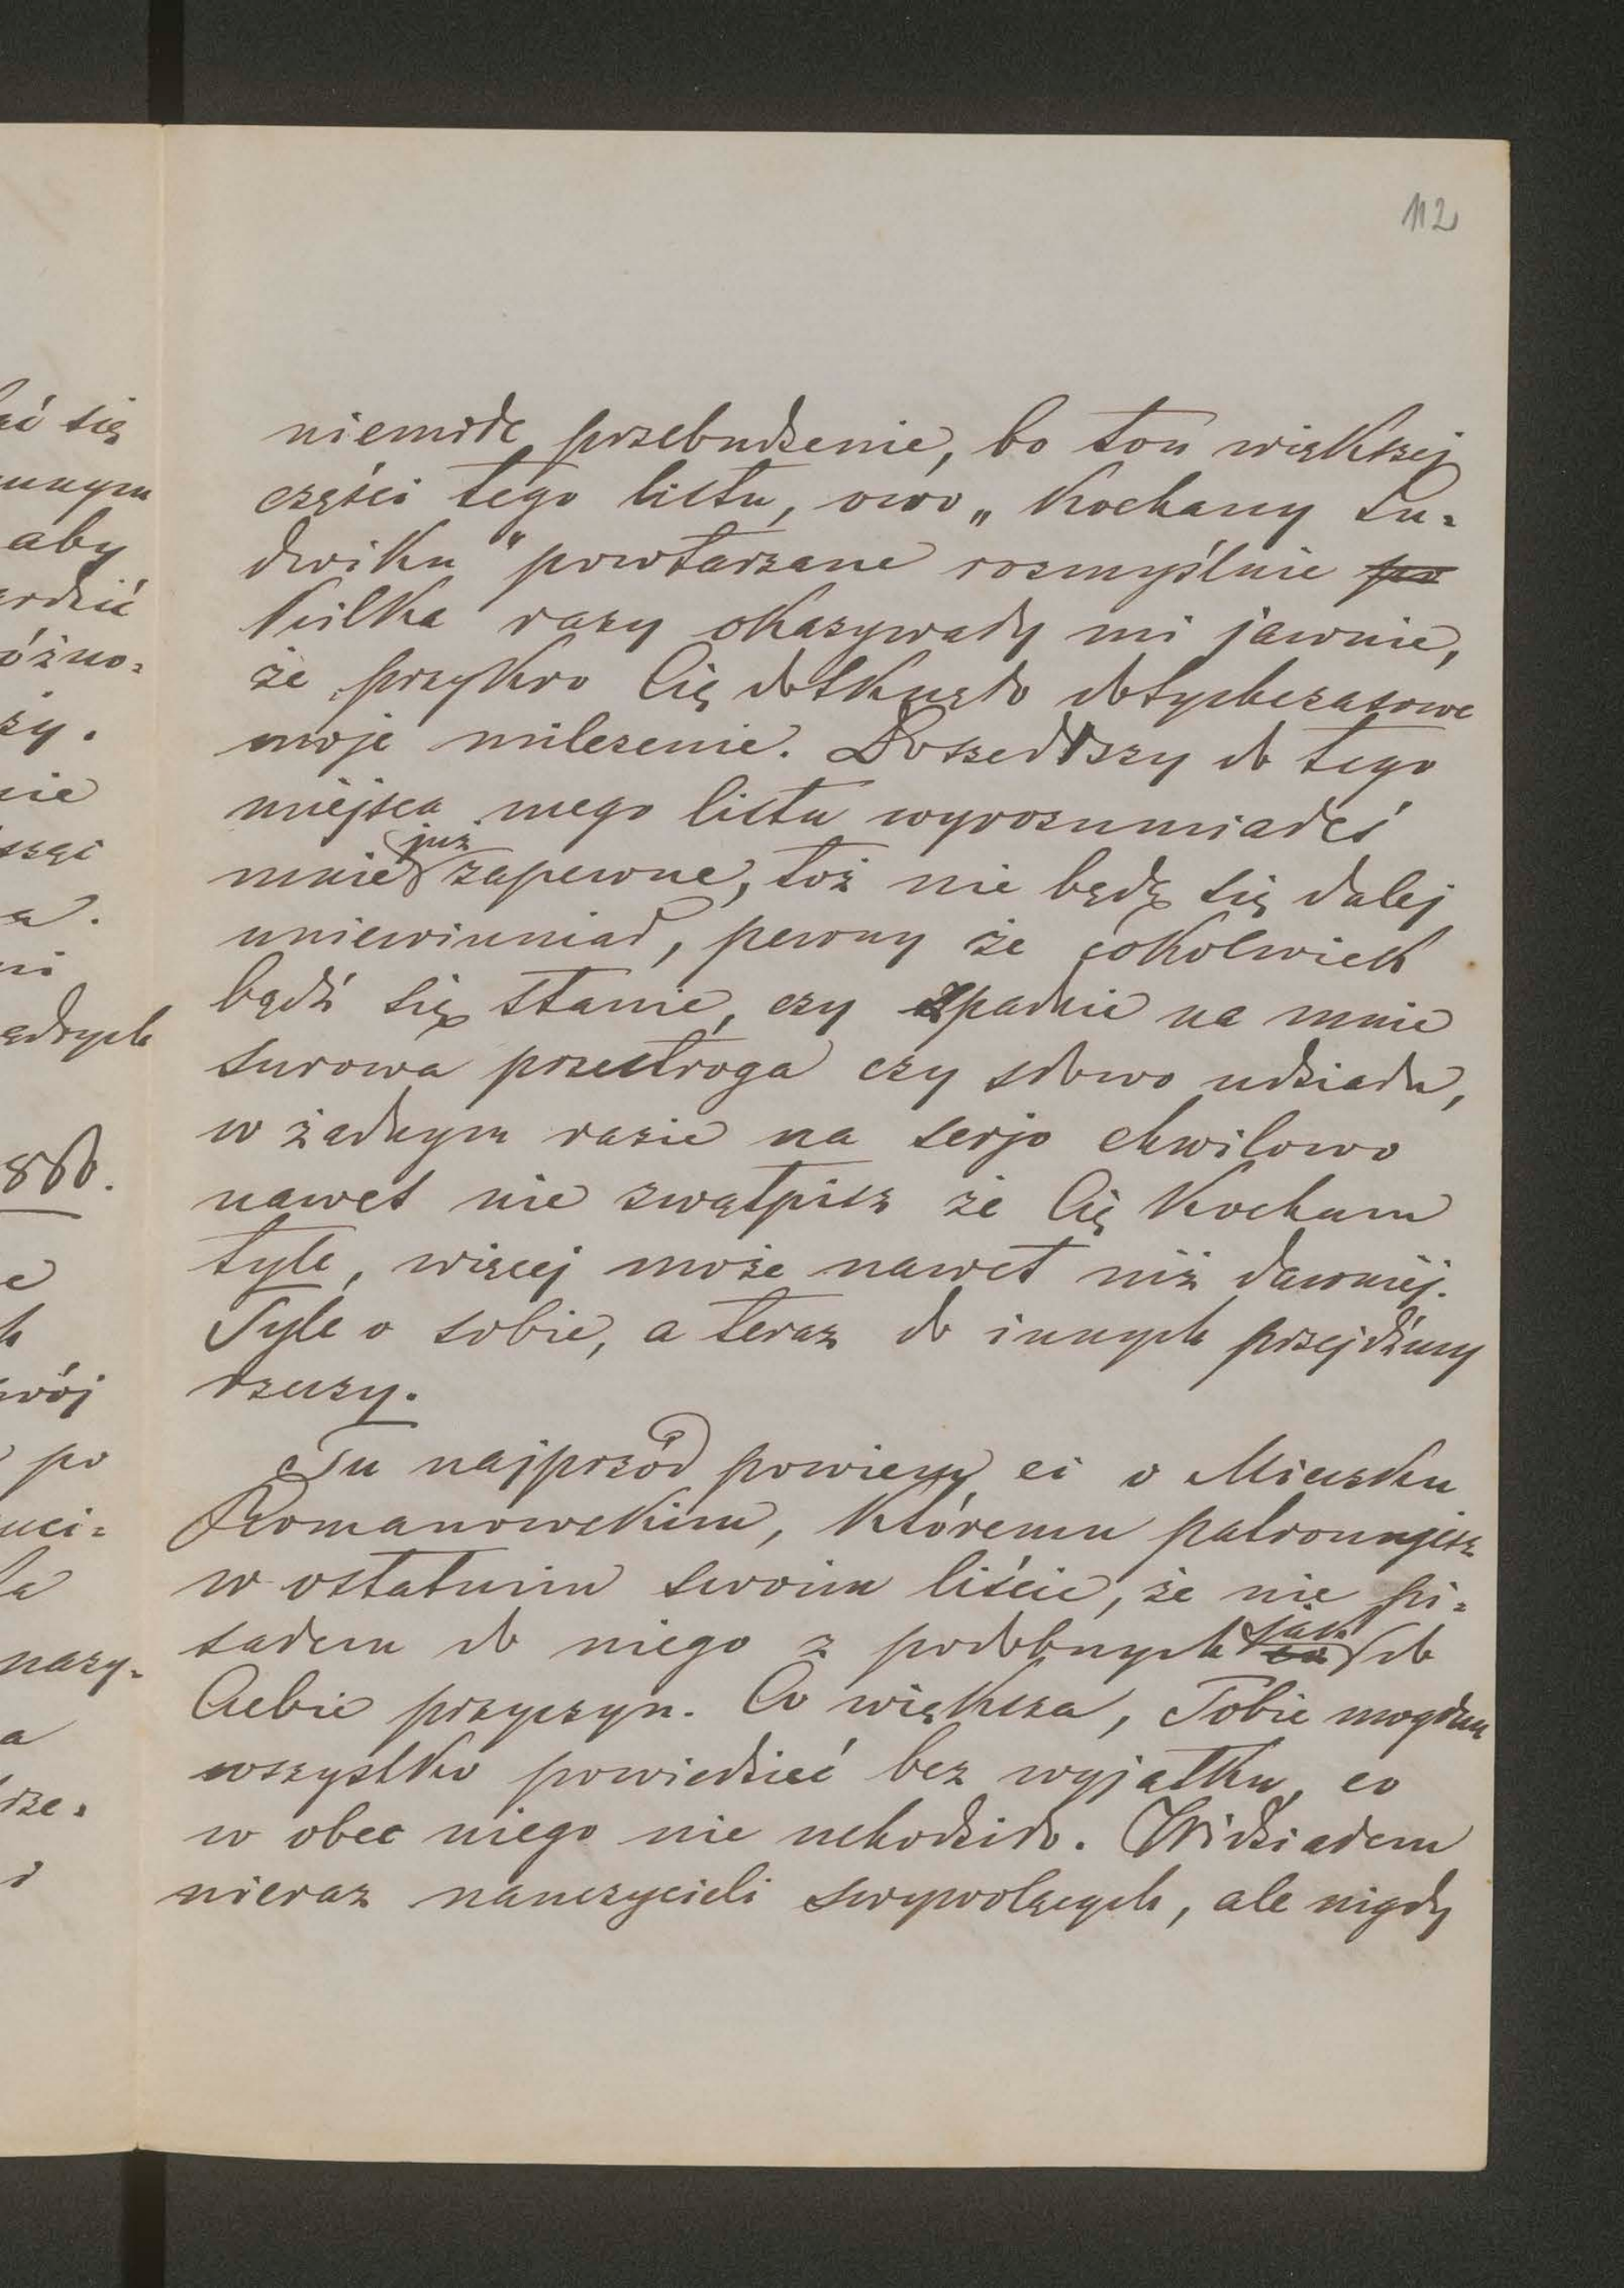 112
niemiłe przebudzenie, bo ton większej
części tego listu, owo „Kochany Lu-
dwiku" powtarzane rozmyślnie po
kilka razy okazywały mi jawnie,
że przykro Cię dotknęło dotychczasowe
moje milczenie. Doszedłszy do tego
miejsca mego listu wyrozumiałeś
mnie już zapewne, toż nie będę się dalej
uniewinniał, pewny że cokolwiek
bądź się stanie, czy spadnie na mnie
surowa przestroga czy słowo udziału,
w żadnym razie na serjo chwilowo
nawet nie zwątpisz że Cię Kocham
tyle, więcej może nawet niż dawniéj.
Tyle o sobie, a teraz do innych przejdźmy
rzeczy.
Tu najprzód powiem ci o Miecsku
Romanowskim, któremu patronujesz
w ostatnim swoim liście, że nie pi-
sałem do niego z podobnych jak co do
Ciebie przyczyn. Co większa, Tobie mogłem
wszystko powiedzieć bez wyjątku, co
w obec niego nie uchodziło. Widziałem
nieraz nauczycieli swywolących, ale nigdy
ać się
nnym
aby
rdzić
óżno-
zy.
nie
ni
866.
wój
po
uci-
ła
nasy-
a